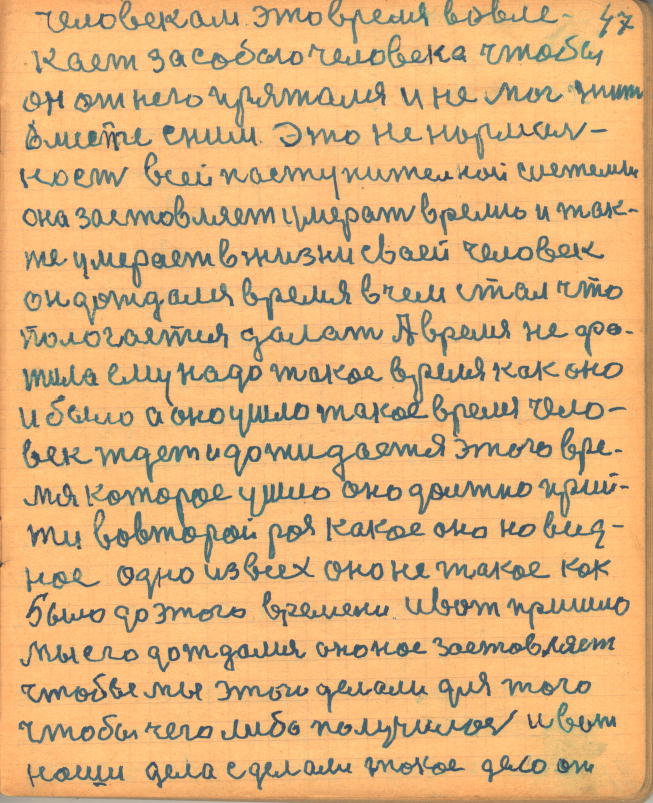 человекам это время вовле- 47
кает за собою человека чтобы
он от него прятался и не мог жит
вместе с ним. Это не нормал-
ност всей наступителной системы
она заставляет умерат времю и так-
же умирает в жизни своей человек
он дождался время в чем стал что
пологается далат А время не хва-
тила ему надо такое время как оно
и было а оно ушло такое время чело-
век ждет и дожидается этого вре-
мя которое ушло оно должно прий-
ти во второй роз какое оно новид-
ное одно из всех оно не такое как
было до этого времени. И вот пришло
мы его дождалися оно нас заставляет
чтобы мы этого делали для того
чтобы чего либо получилос и вот
наши дела сделали такое дело он